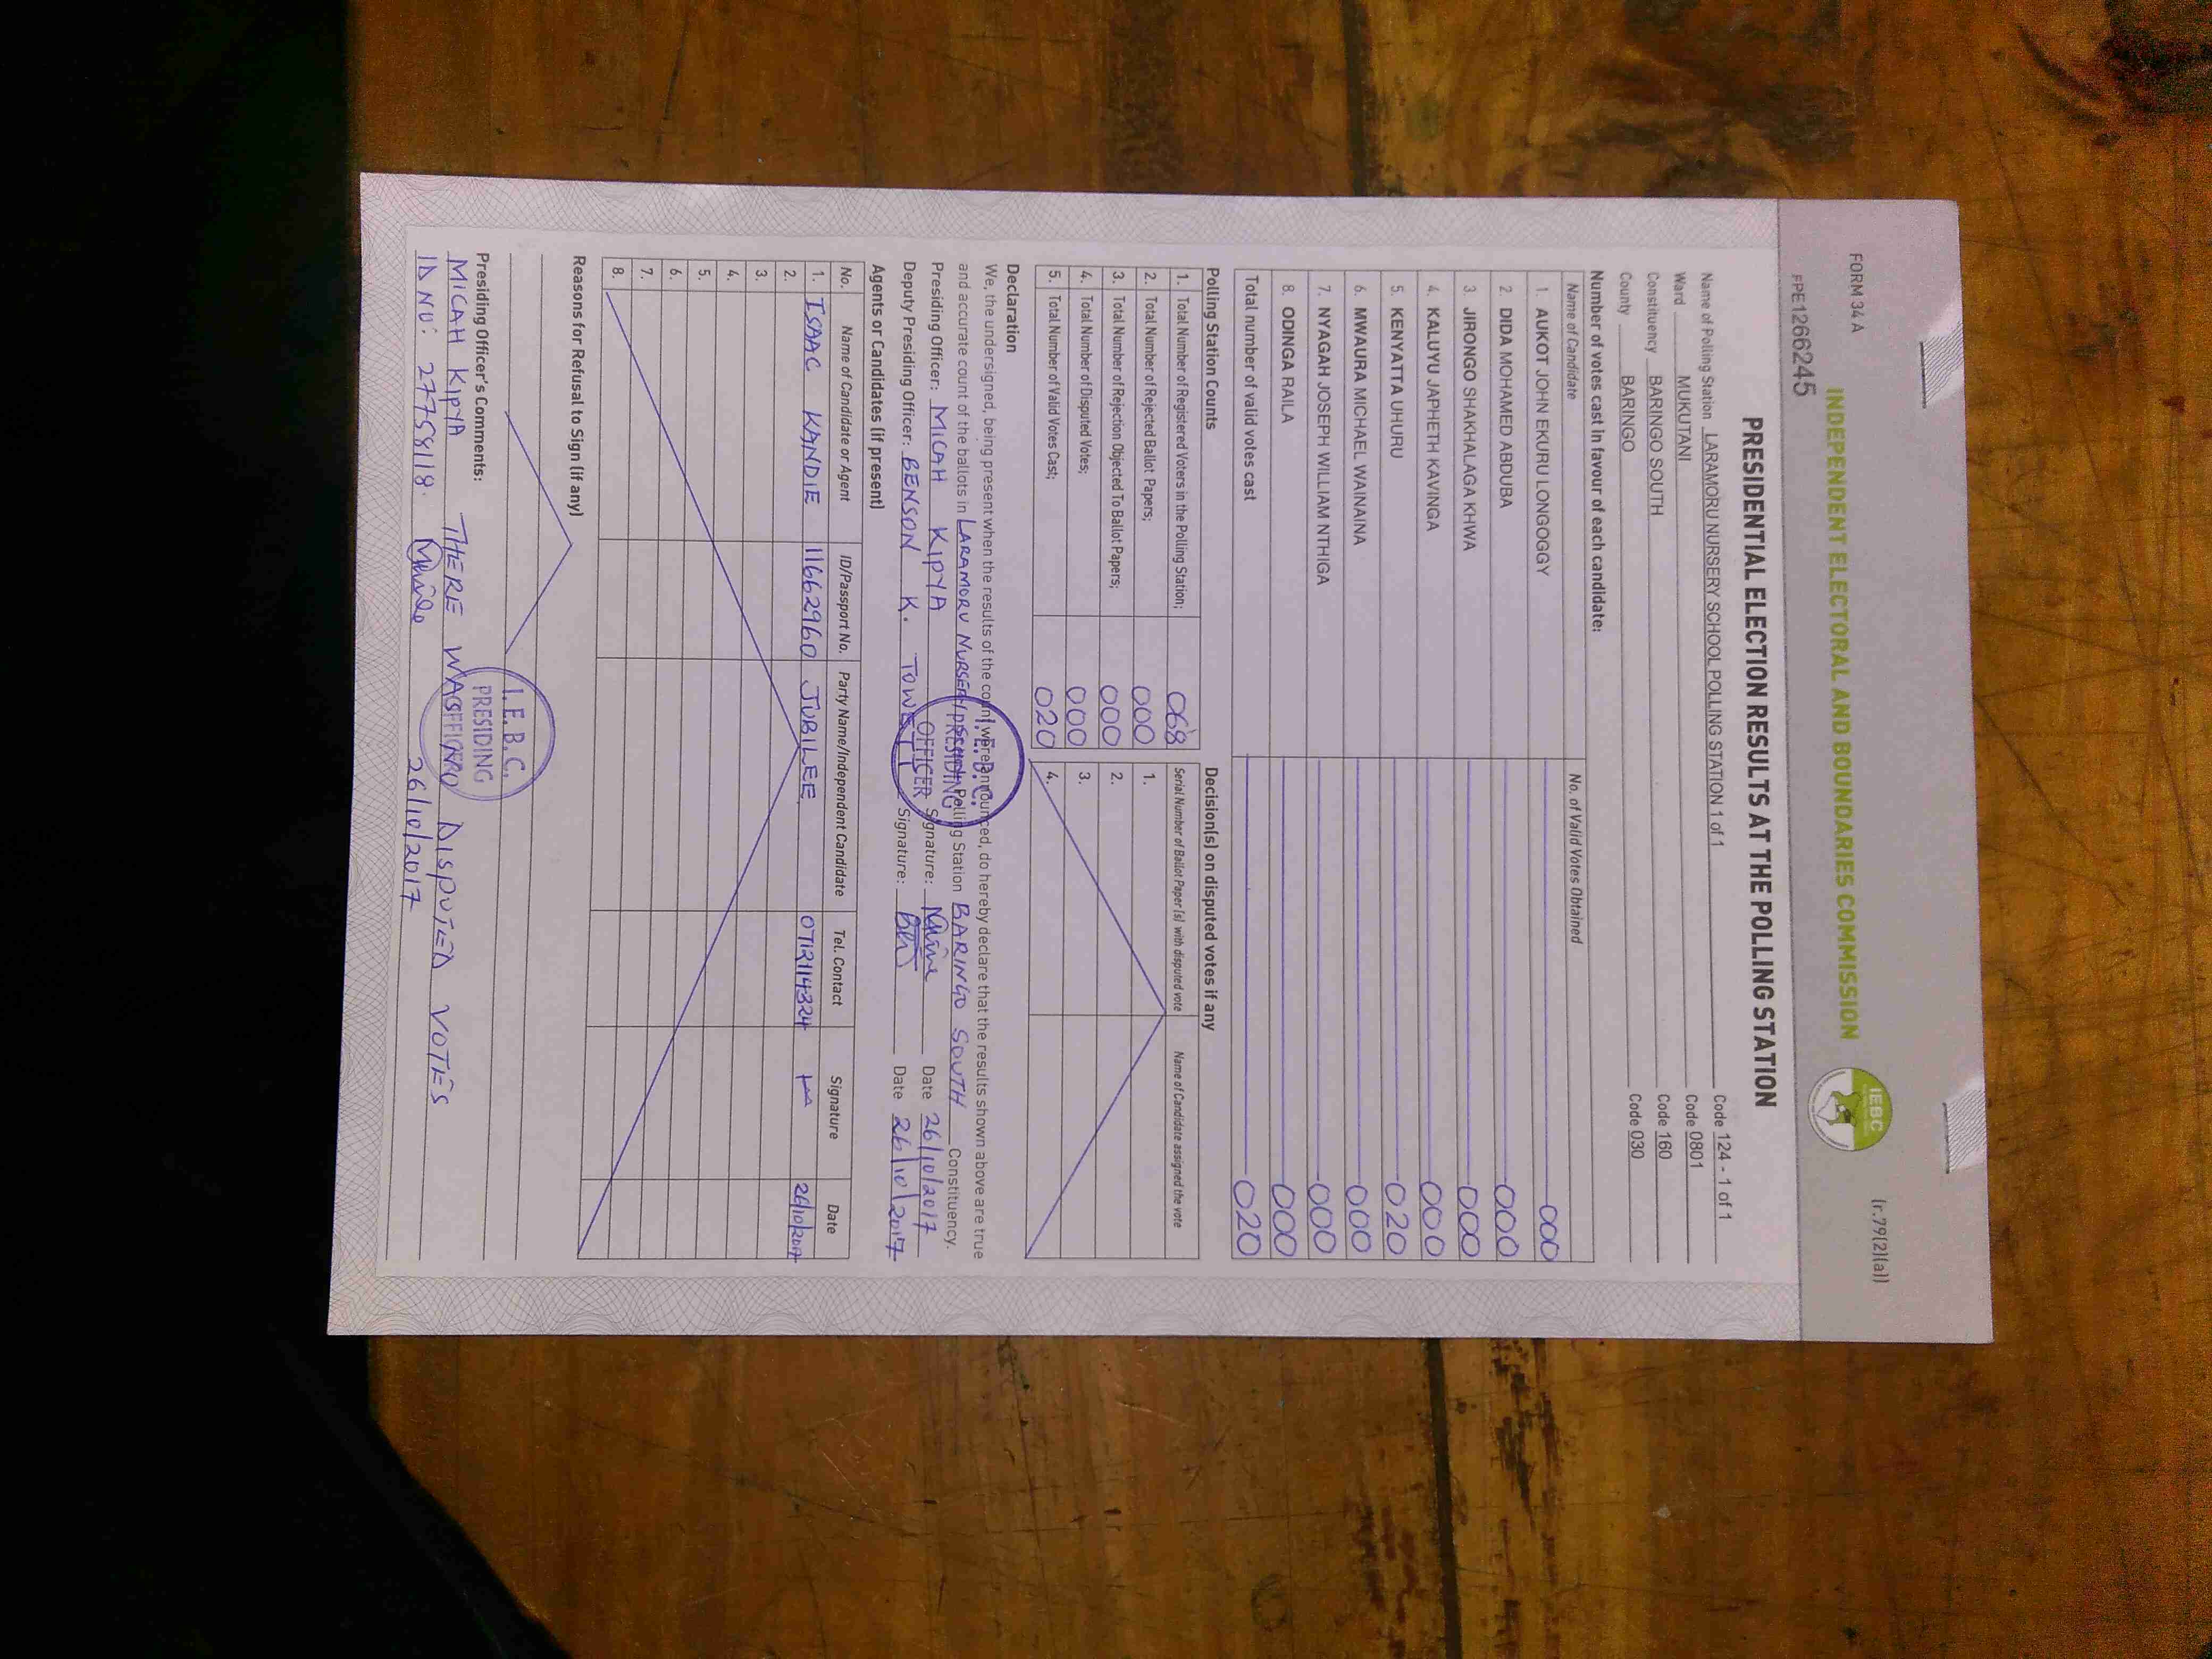 FORM 34 A
(r.79(2)(a))
INDEPENDENT ELECTORAL AND BOUNDARIES COMMISSION
IEBC
FPE1266245
PRESIDENTIAL ELECTION RESULTS AT THE POLLING STATION
Name of Polling Station LARAMORU NURSERY SCHOOL POLLING STATION 1 of 1 Code 124 - 1 of 1
Ward MUKUTANI Code 0801
Constituency BARINGO SOUTH Code 160
County BARINGO Code 030
Number of votes cast in favour of each candidate:
Name of Candidate No. of Valid Votes Obtained
1. AUKOT JOHN EKURU LONGOGGY 000
2. DIDA MOHAMED ABDUBA 000
3. JIRONGO SHAKHALAGA KHWA 000
4. KALUYU JAPHETH KAVINGA 000
5. KENYATTA UHURU 020
6. MWAURA MICHAEL WAINAINA 000
7. NYAGAH JOSEPH WILLIAM NTHIGA 000
8. ODINGA RAILA 000
Total number of valid votes cast 020
Polling Station Counts Decision(s) on disputed votes if any
1. Total Number of Registered Voters in the Polling Station; 068 Serial Number of Ballot Paper (s) with disputed vote Name of Candidate assigned the vote
2. Total Number of Rejected Ballot Papers; 000 1.
3. Total Number of Rejection Objected To Ballot Papers; 000 2.
4. Total Number of Disputed Votes; 000 3.
5. Total Number of Valid Votes Cast; 020 4.
Declaration
We, the undersigned, being present when the results of the count were announced, do hereby declare that the results shown above are true
and accurate count of the ballots in LARAMORU NURSERY Polling Station BARINGO SOUTH Constituency.
Presiding Officer: MICAH KIPYA Signature: Date 26/10/2017
Deputy Presiding Officer: BENSON K. TOWETT Signature: Date 26/10/2017
I.E.B.C.
PRESIDING
OFFICER
Agents or Candidates (if present)
No. Name of Candidate or Agent ID/Passport No. Party Name/Independent Candidate Tel. Contact Signature Date
1. ISAAC KANDIE 11662960 JUBILEE 26/10/2017
2.
3.
4.
5.
6.
7.
8.
Reasons for Refusal to Sign (if any)
I.E.B.C.
PRESIDING
Presiding Officer's Comments:
MICAH KIPYA THERE WAS NO DISPUTED VOTES
ID NO: 27758118. 26/10/2017